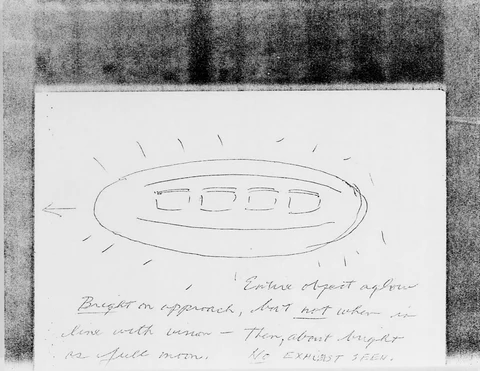 Entire object aglow
Bright on approach, but not when in
line with vision - Then, about bright
as full moon. No EXHAUST SEEN.